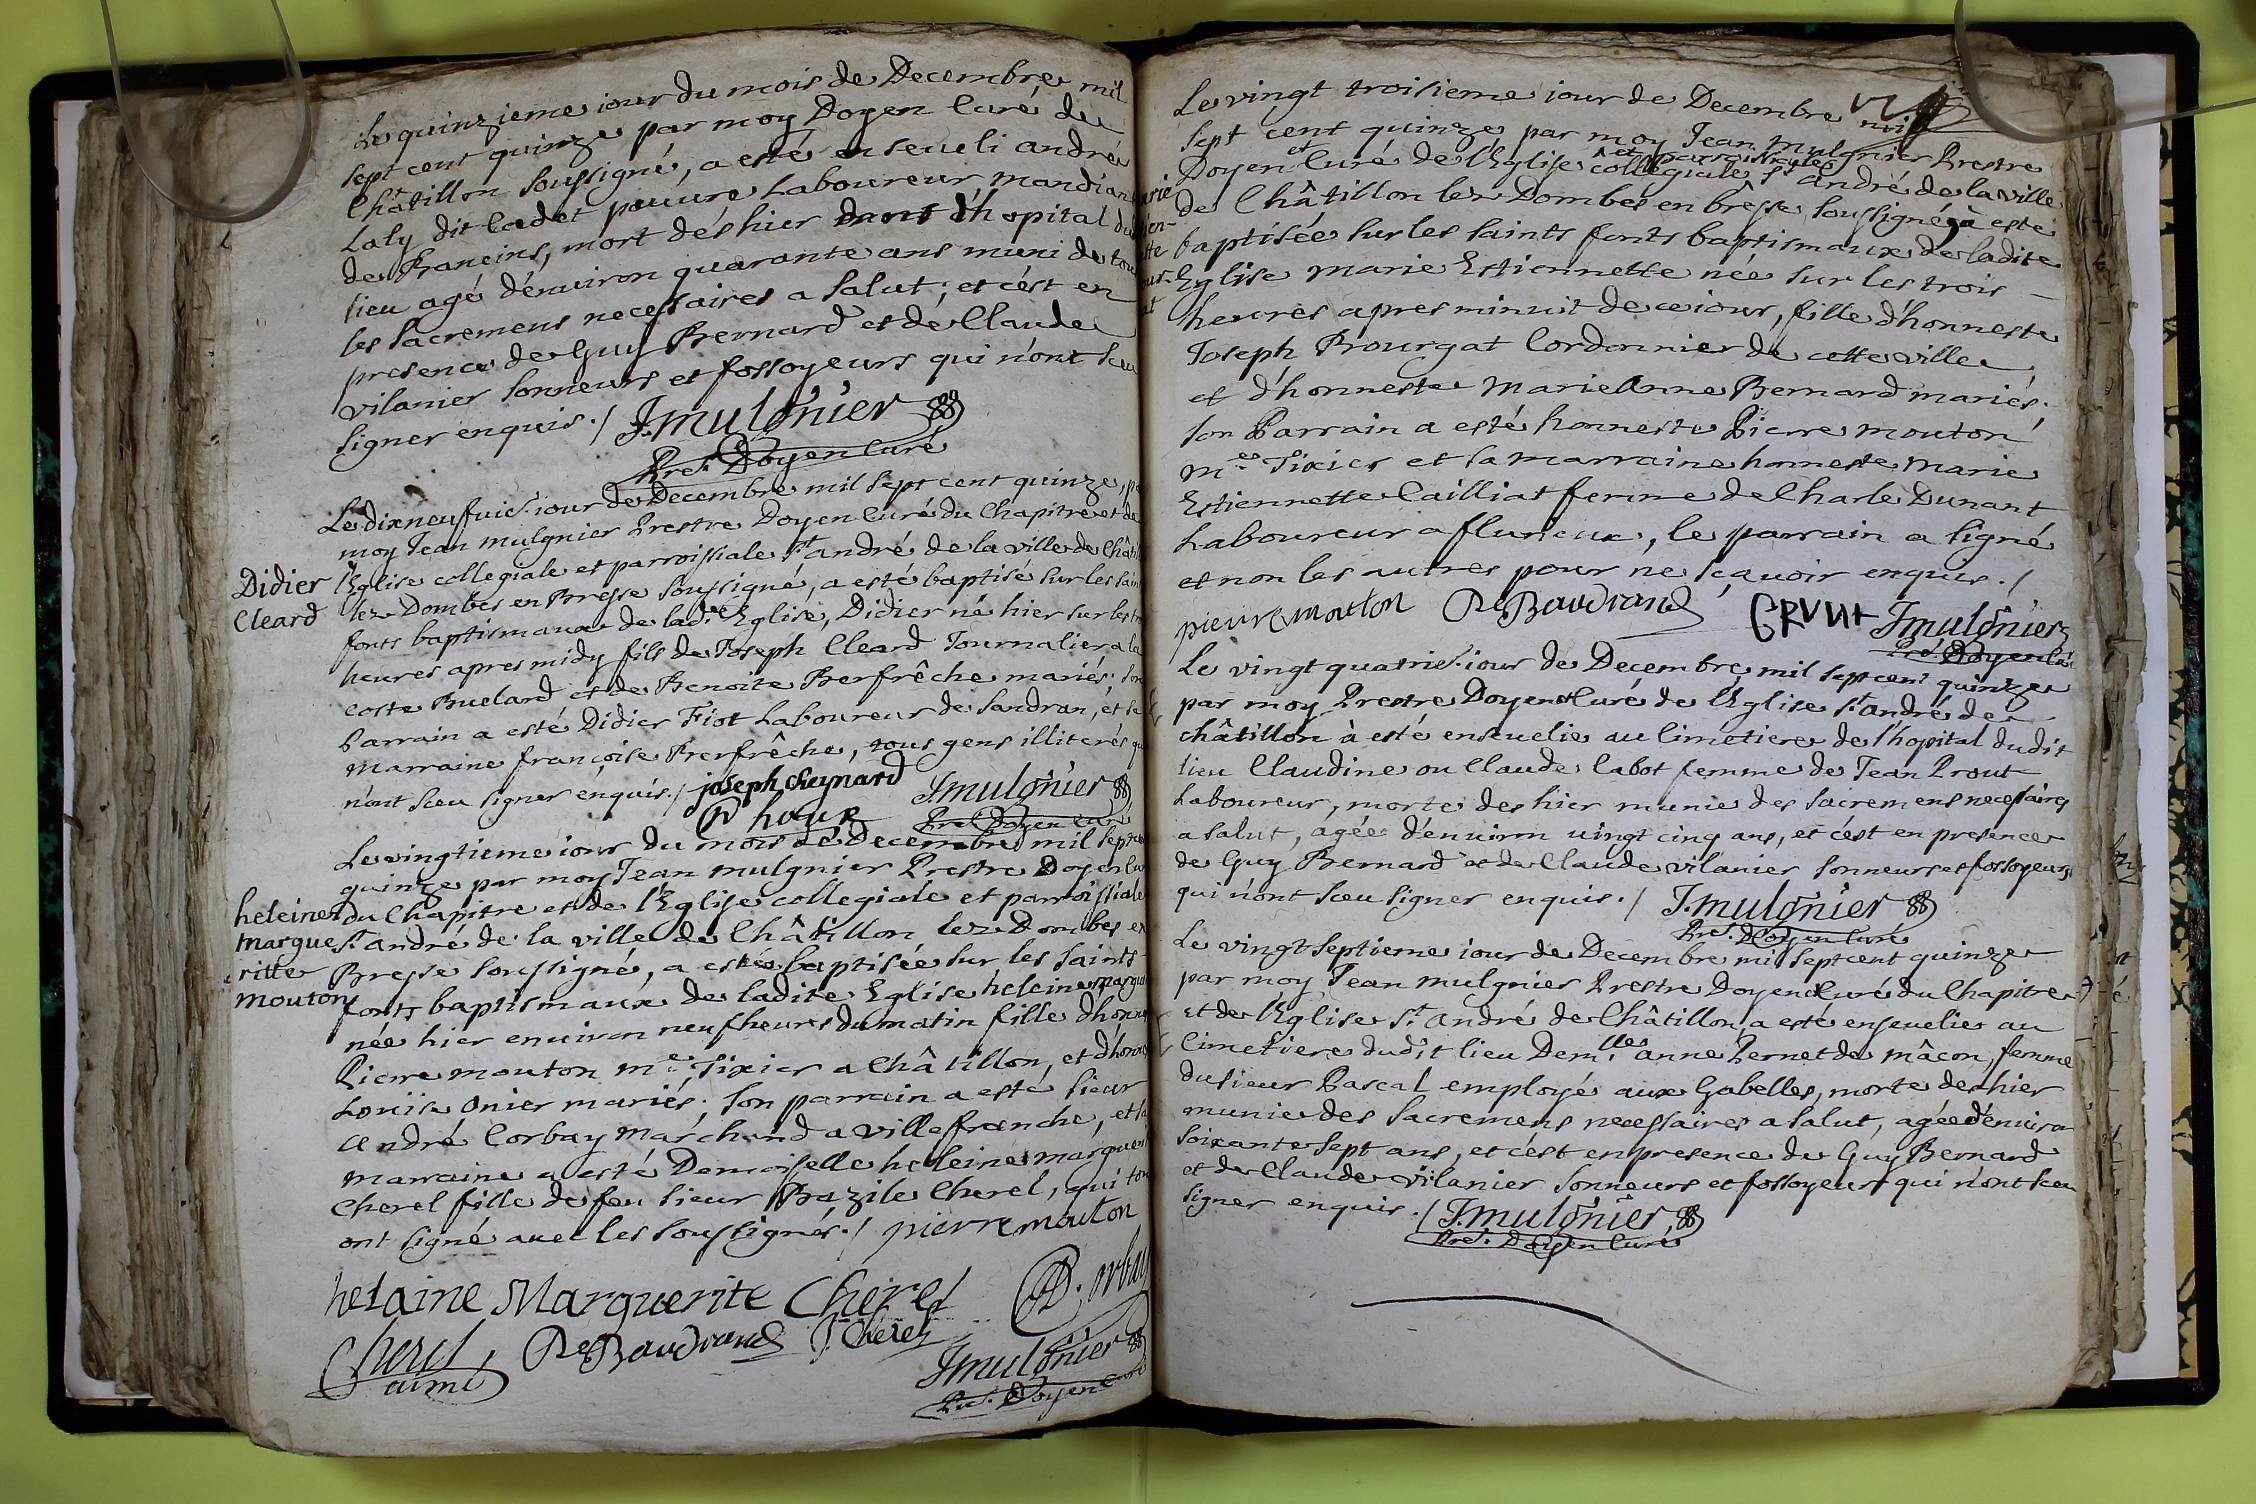 Le quinzieme iour du mois de Decembre mil
sept cent quinze par moy Doyen Curé de
Châtillon soussigné, a esté enseueli andré
Laly dit Cadet pauure Laboureur mandiant
de Franeins, mort dès hier dans l'hopital du
lieu agé d'enuiron quarante ans muni de tous
les sacremens necessaires a salut; et c'est en
presence de Guy Bernard et de Claude
vilanier sonneurs et fossoyeurs qui n'ont sceu
signer enquis./ J. mulgnier
Pre. Doyen Curé
Le dixneufuie. iour de Decembre mil sept cent quinze, p
moy Jean mulgnier Prestre Doyen Curé du Chapitre et de
l'Eglise collegiale et parroissiale St andré de la ville de Châti
Didier
Cleard
lez Dombes en Bresse soussigné, a esté baptisé sur les sain
fonts baptismaux de lad.e Eglise, Didier né hier sur les
heures apres midy fils de Joseph Cleard Journalier a la
coste Buelard et de Benoite Berfrêche mariés; son
Parrain a esté Didier Fiot Laboureur de Sandran, et sa
marraine françoise Berfrêche, tous gens illiterés qu
n'ont sceu signer enquis./ joseph cheynard J. mulgnier
Pre. Doyen Curé
Le vingtieme iour du mois de Decembre mil sept ce
quinze par moy Jean mulgnier Prestre Doyen Cur
du Chapitre et de l'Eglise collegiale et parroissiale
heleine
margue
ritte
mouton
St. andré de la ville de Châtillon lez Dombes en
Bresse soussigné, a estée baptisée sur les saints
fonts baptismaux de ladite Eglise heleine margue
née hier enuiron neuf heures du matin fille d'honne
Pierre mouton me. Tixier a Châtillon, et d'honne
Louïse Onier mariés; son parrain a esté sieur
André Corbay marchand a villefranche, et la
marraine a esté Demoiselle heleine marguer
Cherel fille de feu sieur Bazile Cherel, qui tou
ont signé auec les soussignés./ pierre mouton
helaine Marguerite Cherel
Cherel
De Baudrand J. Cherel
J mulgnier
Pre. Doyen Curé
Le vingt troisieme iour de Decembre mil
sept cent quinze par moy Jean Mulgnier Prestre
Doyen et Curé de l'Eglise collegiale et parroissiale St andré de la ville
de Châtillon lez Dombes en brêsse soussigné, à esté
baptisée sur les saints fonts baptismaux de ladite
Eglise marie Estiennette née sur les trois
heures apres minuit de ce iour, fille d'honneste
Joseph Bourgat Cordonnier de cette ville
et d'honneste Marie Anne Bernard mariés;
son Parrain a esté honneste Pierre mouton
me. Tixier et sa marraine honneste Marie
Estiennette Cailliat femme de Charle Dunant
Laboureur a flurieux, le parrain a signé
et non les autres pour ne sçauoir enquis./
pieure mouton De Baudrand J mulgnier
Pre. Doyen Cu
Le vingt quatrie. iour de Decembre mil sept cent quinze
par moy Prestre Doyen et Curé de l'Eglise St. andré de
châtillon à esté enseuelie au Cimetiere de l'hopital dudit
lieu Claudine ou Claude Cabot femme de Jean Prout
Laboureur, morte des hier munie des sacremens necessaires
a salut, âgée d'enuiron uingt cinq ans, et c'est en presence
de Guy Bernard et de Claude vilanier sonneurs et fossoyeurs
qui n'ont sceu signer enquis./ J. mulgnier
Pre. Doyen Curé
Le vingt septieme iour de Decembre mil sept cent quinze
par moy Jean mulgnier Prestre Doyen et Curé du Chapitre
et de l'Eglise St. andré de Châtillon, a esté enseuelie au
Cimetiere dudit lieu Dem.lle anne Pernet de mâcon, femme
du sieur Pascal employé aux Gabelles, morte des hier
munie des sacremens necessaires a salut, agée d'enuiron
soixante sept ans, et c'est en presence de Guy Bernard
et de Claude Vilanier sonneurs et fossoyeurs qui n'ont sceu
signer enquis./ J. mulgnier
Pre. Doyen Curé